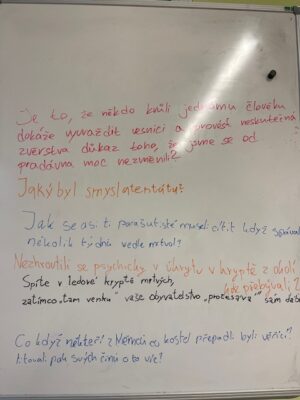 Je to, že někdo kvůli jednomu člověku
dokáže vyvraždit vesnici a provést neskutečná
zvěrstva důkaz toho, že jsme se od
pradávna moc nezměnili?
Jaký byl smysl atentátu?
Jak se asi ti parašutisté museli cítit když
několik týdnů vedle mrtvol?
Nezhroutili se psychicky v úkrytu v kryptě
kde přebývali?
Spíte v ledové kryptě mrtvých,
zatímco "tam venku" vaše obyvatelstvo
Co když někteří z Němců co kostel přepadli byli věřící?
litovali pak svých činů